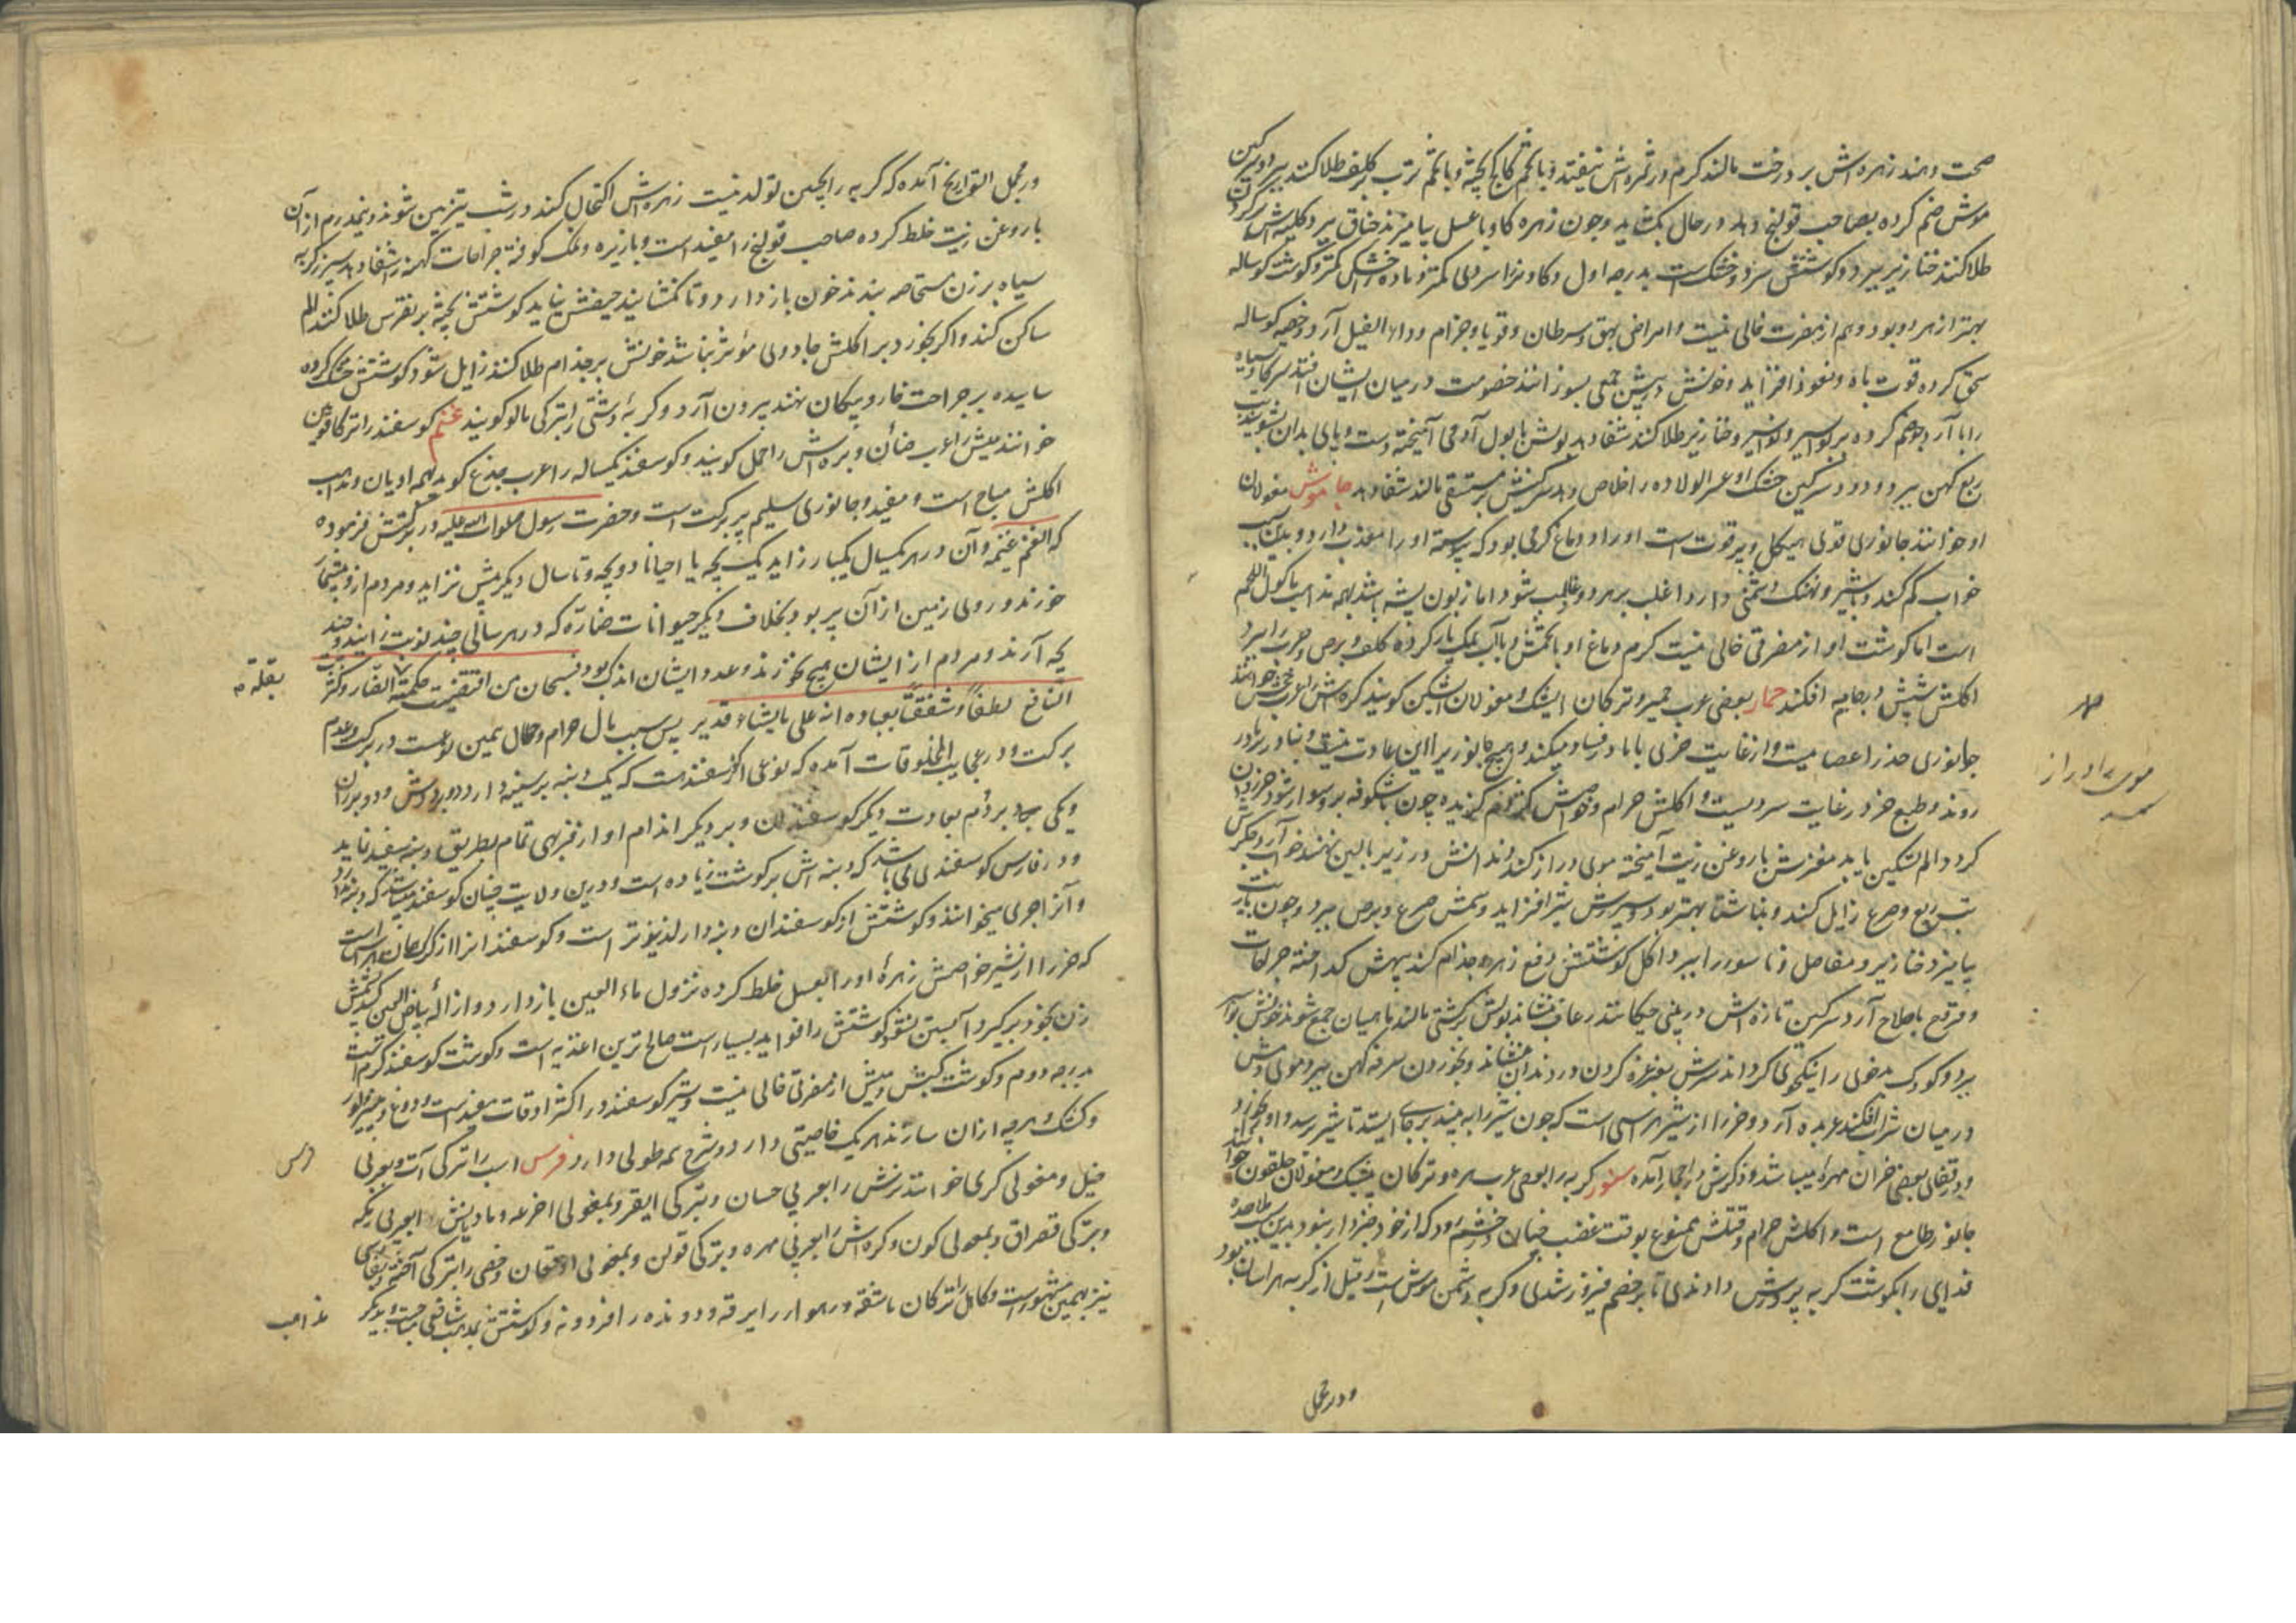 صحت دهند زهره‌اش بر درخت مالند کرم در ثمره‌اش نیفتد و با تخم کاج پخته و با تخم ترب بر کلف طلا کنند ببرد و سرگین
موش ضم کرده بصاحب قولنج دهند در حال بگشاید و چون زهره گاو با عسل بیامیزند خناق ببرد
طلا کنند خنازیر ببرد و گوشتش سرد و خشک است بدرجه اول و گاو نر را سردی کمتر و ماده را خشکی کمتر و گوشت گوساله
بهتر از هر دو بود و هم از مضرت خالی نیست و امراض بهق و سرطان و قوبا و جذام و داء الفیل آرد و خصیه گوساله
سحق کرده قوت باه و نعوذ افزاید و خونش در پیش جمعی بسوزانند خصومت در میان ایشان افتد
را با آرد جو ضم کرده بر بواسیر و نواسیر و خنازیر طلا کنند شفا دهد بولش با بول آدمی آمیخته دست و پای بدان بشویند تب
ربع کهن ببرد و دود سرگین خشک او عسر الولاده را خلاص دهد سرگینش بر مستسقی مالند شفا دهد جاموش مغولان
او خوانند جانوری قوی هیکل و پر قوت است او را در دماغ کرمی بود که پیوسته او را معذب دارد و بدین سبب
خواب کم کند و با شیر و نهنگ دشمنی دارد اغلب بر هر دو غالب شود اما زبون پشه باشد بهمه مذاهب ماکول اللحم
است اما گوشت او از مضرتی خالی نیست کرم دماغ او با نمک بار کرده کلف و برص و جرب را ببرد
اکلش شپش در جامه افکند حمار بعضی عرب حمیر و ترکان ایشک و مغولان ایشکن گویند کره‌اش را عرب جحش خوانند
جانوری حذر اعصامیست و از غایت خری با مادر فساد میکند و هیچ جانوریرا این عادت نیست
روند و طبع خر در غایت سردیست و اکلش حرام و خواصش کژدم گزیده چون باشکونه برو سوار شود
گردد الم تسکین یابد مغزش با روغن زیت آمیخته موی دراز کند دندانش در زیر بالین نهند خواب آرد جگرش
تب ربع و صرع زایل کند و بناشتا بهتر بود و سپرزش شیر افزاید و سمش صرع و برص ببرد و چون با زیت
بیامیزد خنازیر و مفاصل و ناسور را ببرد و اکل گوشتش دفع زهر و جذام کند پیهش گداخته جراحات
و قروح باصلاح آرد سرگین تازه‌اش در بینی چکانند رعاف بنشاند بولش بر کشتی مالند ماهیان جمع شوند خونش بواسیر
ببرد و کودک بدخوی را نیکخوی گرداند شیرش بغرغره کردن درد دندان بنشاند و بخوردن سرفه کهن ببرد و موی دمش
در میان شراب افکنند عربده آرد و خر را از شیر هراسی است که چون شیر را به بیند بر جای ایستد تا شیر برسد و او را بخورد
و در قفای بعضی خران مهره میباشد و ذکرش در احجار آمده سنور گربه را بعضی عرب هره و ترکان پیشک و مغولان خوانند
جانور طامع است و اکلش حرام و قتلش ممنوع بوقت غضب چنان در خشم رود که از خود خبردار نبود بدین سبب ملاحده
فدایی را بگوشت گربه پرورش دادندی تا بر خصم فیروز شدی و گربه دشمن موش است و فیل از گربه هراسان بود
ودر مجمل
موی را دراز
کند
ودر مجمل التواریخ آمده که گربه را بچین تولد نیست زهره‌اش اکتحال کنند در شب تیزبین شوند و نیمدرم از آن
با روغن زیت خلط کرده صاحب قولنج را مفید است و با زیره و نمک کوفته جراحات کهنه را شفا دهد سپرز گربه
سیاه بر زن مستحاضه بندند خون باز دارد و تا نگشایند حیضش نیاید گوشتش پخته بر نقرس طلا کنند الم
ساکن کند و اگر بخورد بر اکلش جادویی مؤثر نباشد خونش بر جذام طلا کنند زایل شود گوشتش خشک کرده
ساییده بر جراحت خار و پیکان نهند بیرون آرد و گربه دشتی را بترکی مالو گویند غنم گوسفند را ترکان قوین
خوانند میش را عرب ضأن و بره‌اش را حمل گویند و گوسفند یکساله را عرب جذع گوید بهمه ادیان و مذاهب
اکلش مباح است و مفید و جانوری سلیم پر برکت است و حضرت رسول صلوات الله علیه در برکتش فرموده
که الغنم غنیمة و آن در هر یکسال یکبار زاید یک بچه یا احیانا دو بچه و تا سال دیگر بیش نزاید و مردم ازو بیشمار
خورند و روی زمین از آن پر بود بخلاف دیگر حیوانات ضاره که در هر سالی چند نوبت زایند و چند
بچه آرند و مردم از ایشان هیچ نخورند و عدد ایشان اندک بود فسبحان من اقتضت حکمته بقلة الضار و کثرت
النافع لطفا و شفقة بعباده انه علی ما یشاء قدیر پس سبب مال حرام و حلال بهمین نوعست در برکت و عدم
برکت و در عجایب المخلوقات آمده که نوعی از گوسفندست که یک دنبه بر سینه دارد و دو بر دوش و دو بر ران
و یکی بجای بر دم بعادت دیگر گوسفندان و بر دیگر اندام او از فربهی تمام بطریق دنبه سفید نماید
و در فارس گوسفندی می باشد که دنبه‌اش بر گوشت زیاده است و درین ولایت چنان گوسفند میباشد که دنبه ندارد
و آنرا جری میخوانند و گوشتش از گوسفندان دنبه‌دار لذیذتر است و گوسفند انرا از گرگ چنان هراس است
که خر را از شیر خواصش زهره او را بعسل خلط کرده نزول ماء العین باز دارد و ازاله بیاض العین کند پشمش
زن بخود برگیرد آبستن نشود گوشتش را فواید بسیار است صالح ترین اغذیه است و گوشت گوسفند گرم است
بدرجه دوم و گوشت کبش و میش از مضرتی خالی نیست و شیر گوسفند در اکثر اوقات مفید است و دوغ و پنیر
و کشک و هرچه از آن سازند هر یک خاصیتی دارد و شرح همه طولی دارد فرس اسب را بترکی آت و بعربی
خیل و مغولی گری خوانند نرش را بعربی حسان و بترکی ایغر و بمغولی اخرغه و مادیانش را بعربی رمکه
و بترکی قصراق و بمغولی کون و کره‌اش را بعربی مهره و بترکی قولن و بمغولی و خصی را بترکی
نیز بهمین مشهورست و کاهل را ترکان و رهوار را یرقه و دونده را و گوشتش بمذهب شافعی مباحست و بدیگر
بقلة
فرس
مذاهب